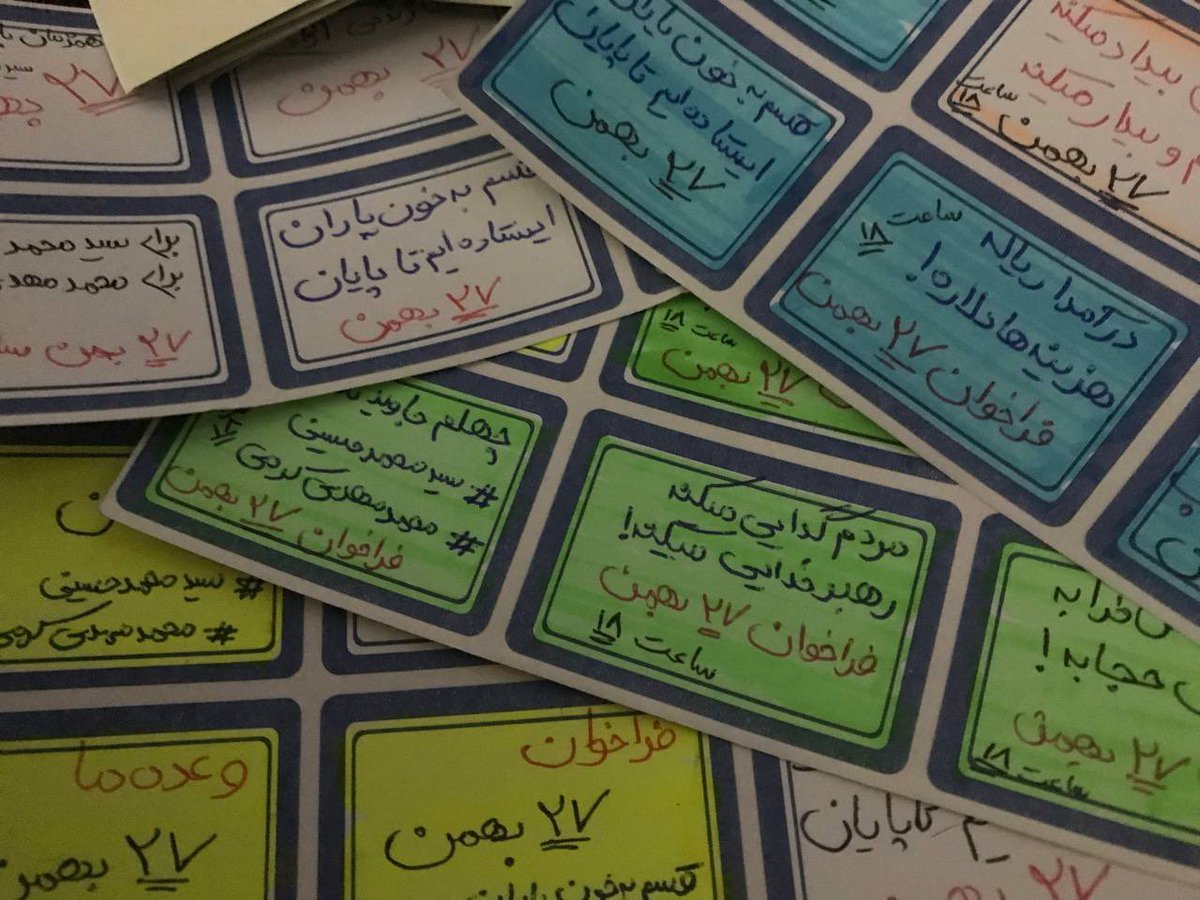 ۲۷ بهمن
۲۷ بهمن
قسم به خون یاران
ایستاده ایم تا پایان
۲۷ بهمن
بیداد میکنه
و بیدار میکنه
ساعت ۱۸
۲۷ بهمن
برای سید محمد
برای محمد مهدی
۲۷ بهمن
قسم به خون یاران
ایستاده ایم تا پایان
۲۷ بهمن
درآمدا ریاله
هزینه ها دلاره!
ساعت ۱۸
فراخوان ۲۷ بهمن
ساعت ۱۸
۲۷ بهمن
چهلم جاوید
# سید محمد حسینی
# محمد مهدی کرمی
۱۸
فراخوان ۲۷ بهمن
مردم گدایی میکنه
رهبر خدایی میکنه!
فراخوان ۲۷ بهمن
ساعت ۱۸
حجابه!
۲۷ بهمن
ساعت ۱۸
# سید محمد حسینی
# محمد مهدی کرمی
وعده ما
۲۷ بهمن
فراخوان
۲۷ بهمن
قسم به خون یاران
تا پایان
۲۷ بهمن